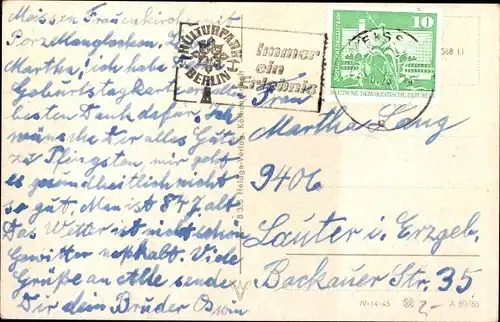 Meissen Frauenkirche mit
Porzellanglocken. L.
Martha, ich habe
Geburtstagkarte erhalte
besten Dank dafür. Ich
wünsche Dir alles Gute
zu Pfingsten, mir geht
es gesundheitlich nicht
so gut. Man ist 84 J alt
Das Witter ist nicht schön
Gewitter naßhalt. Viele
Grüße an Alle sende
Dir dein Bruder Oswin
KULTURPARK
BERLIN
immer
ein
Erlebnis
10
DEUTSCHE DEMOKRATISCHE REPUBLIK
Frau
Martha Lang
9406
Lauter i. Erzgeb.
Bockauer Str. 35
IV-14-45
2,-